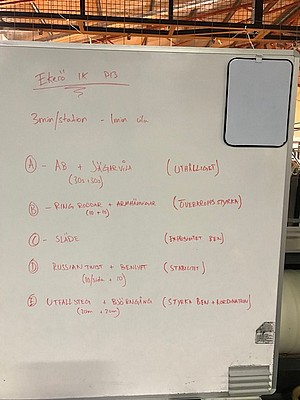 Ekerö IK P13
3min/station - 1min vila
A - AB + JÄGARVILA (UTHÅLLIGHET)
(30s+30s)
B - RINGRODDAR + ARMHÄVNINGAR (ÖVERKROPPSSTYRKA)
(10 + 10)
C - SLÄDE (EXPLOSIVITET BEN)
D RUSSIAN TWIST + BENLYFT (STABILITET)
(10/sida + 10)
E UTFALLSTEG + BJÖRNGÅNG (STYRKA BEN + KOORDINATION)
(20m + 20m)